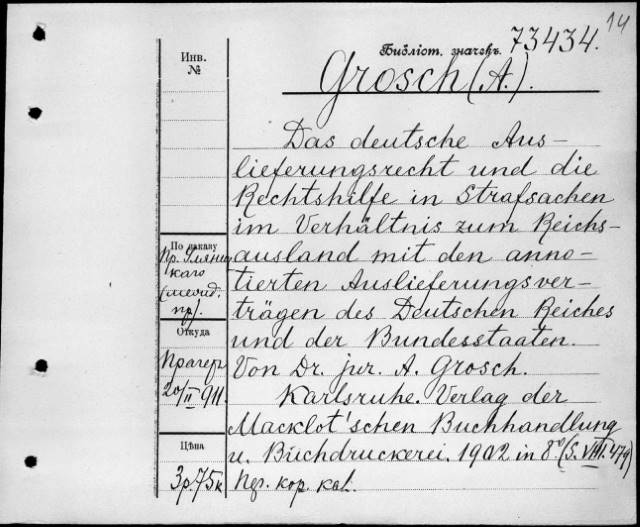 14
Библіот. значекъ. 73434.
Grosch (A.).
Инв.
№
Das deutsche Aus-
lieferungsrecht und die
Rechtshilfe in Strafsachen
im Verhältnis zum Reichs-
ausland mit den anno-
tierten Auslieferungsver-
trägen des Deutschen Reiches
und der Bundesstaaten.
Von Dr. jur. A. Grosch.
Karlsruhe. Verlag der
Macklot'schen Buchhandlung
u. Buchdruckerei. 1902 in 8° (S. VIII. 479)
кор. kal.
По заказу
Пр. Улянец
каго
пр).
Откуда
Прагер
20/II 911.
Цѣна
3 р. 75 к